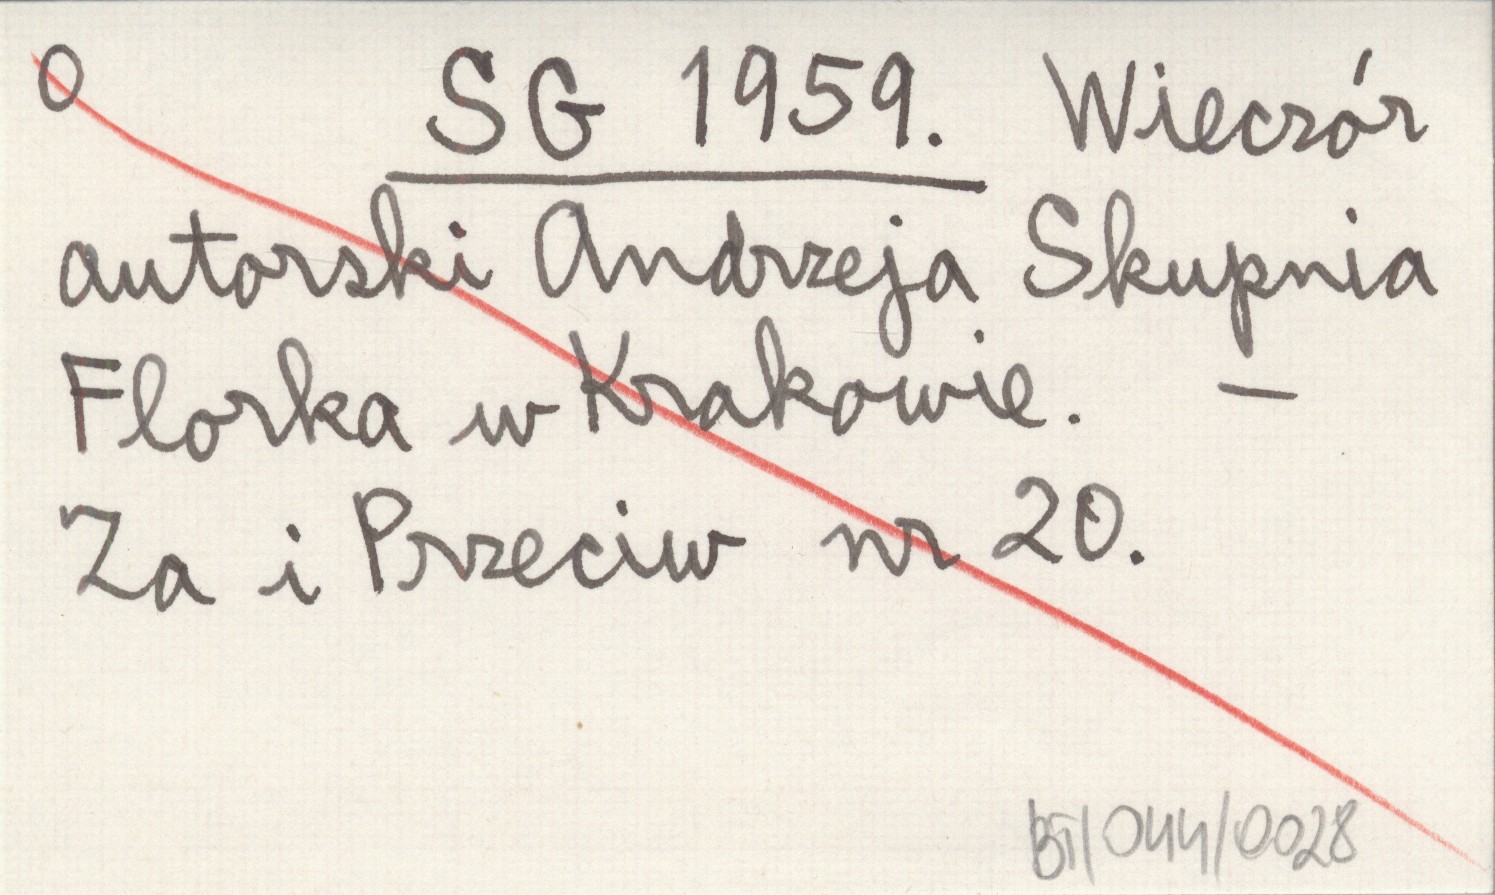 O SG 1959. Wieczór
autorski Andrzeja Skupnia
Florka w Krakowie. —
Za i Przeciw nr 20.
BT/044/0028